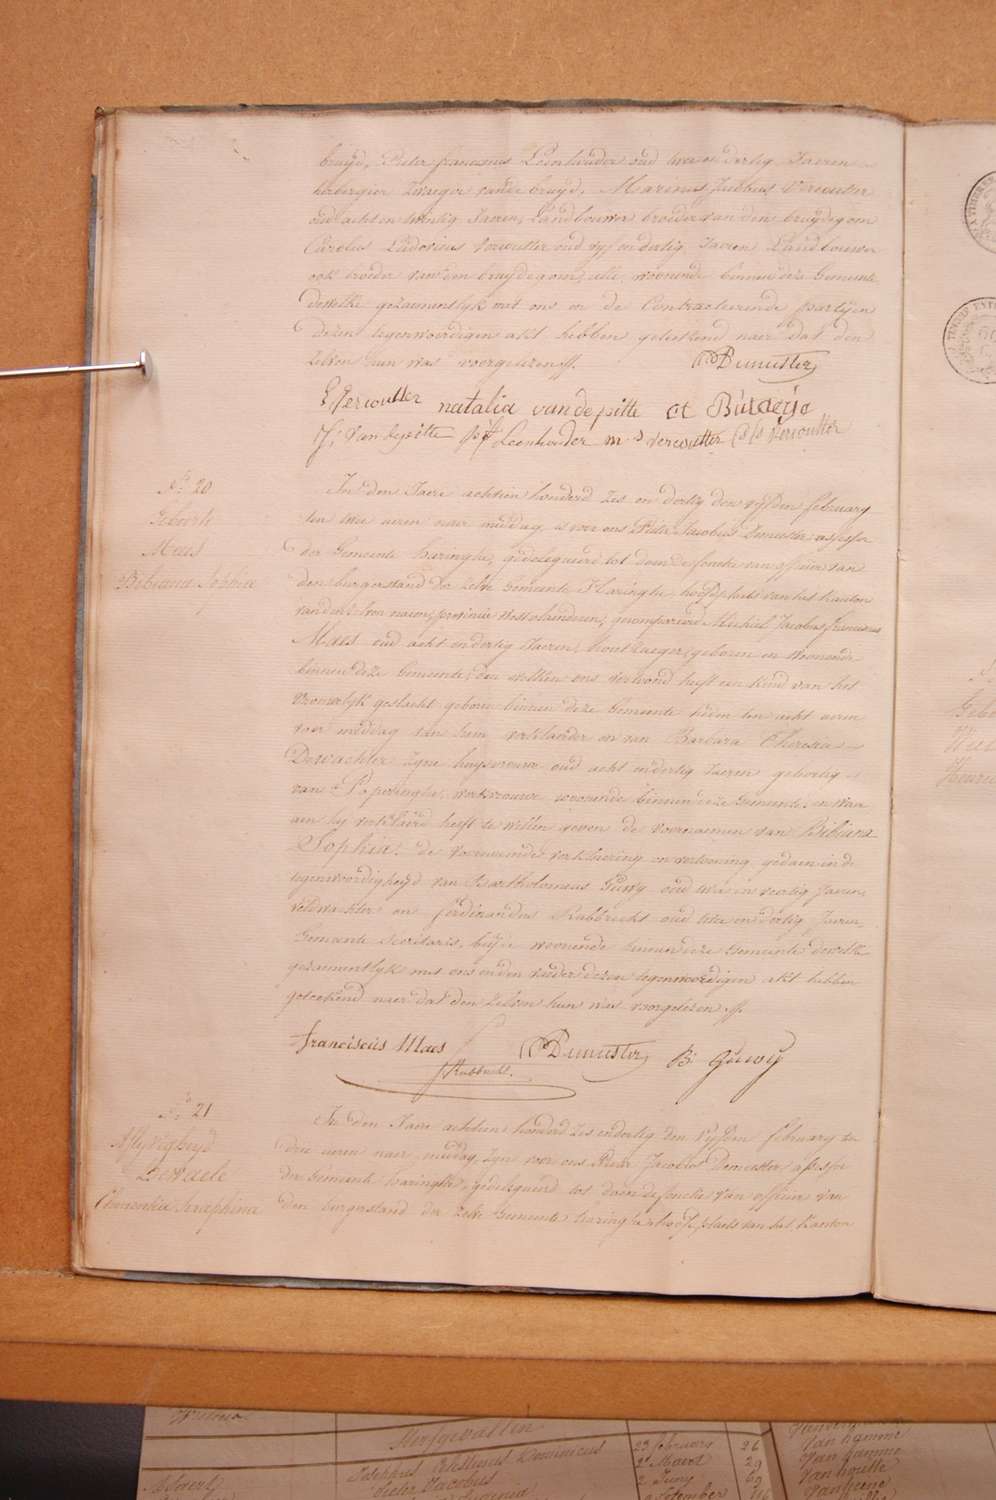 bruyd, Pieter franciscus Leenhouder oud twee en dertig Jaeren
herbergier zwaeger vande bruyd, Marinus Jacobus Vercoutter
oud acht en twintig Jaeren, Landbouwer broeder van den bruydegom
Carolus Ludovicus Vercoutter oud vyf en dertig Jaeren Landbouwer
ook broeder van den bruydegom, alle woonende binnen deze Gemeente
dewelke gezaementlyk met ons en de Contracteerende partijen
dezen tegenwoordigen akt hebben geteekend naer dat den
zelven hun was voorgelezen
P Demeester
Vercoutter natalia van de pitte
van de pitte Leenhouder Vercoutter Vercoutter
N° 20
Geboorte
Maes
Bibiana Sophia
In den Jaere achtien honderd zes en dertig den vyfden february
ten twee uren naer middag, is voor ons Pieter Jacobus Demeester assessor
der Gemeente haringhe, gedelegueerd tot doen de fonctie van officier van
den burgerstand der zelve Gemeente Haringhe, hoofdplaets van het Kanton
van den naem, provincie Westvlaenderen, gecompareerd Michiel Jacobus franciscus
Maes oud acht en dertig Jaeren, houtzaeger, geboren en woonende
binnen deze Gemeente, den welken ons vertoond heeft een kind van het
vrouwelyk geslacht geboren binnen deze Gemeente heden ten acht uren
voor middag van hem verklaerder en van Barbara Theresia
Dewachter zyne huysvrouwe oud acht en dertig Jaeren geboortig
van Poperinghe, werkvrouwe woonende binnen deze Gemeente, en waer
aen hy verklaerd heeft te willen geven de voornamen van Bibiana
Sophia. de voornoemde verklaering en vertooning gedaen in de
tegenwoordigheyd van Bartholomeus Guwy oud twee en veertig Jaeren,
veldwachter en ferdinandus Rabbrecht oud twee en dertig Jaeren,
Gemeente secretaris, beyde woonende binnen deze Gemeente dewelke
gezaementlyk met ons en den vader dezen tegenwoordigen akt hebben
geteekend naer dat den zelven hun was voorgelezen
franciscus Maes P Demeester B. Guwy
Rabbrecht.
N° 21
Aflyvigheyd
Dewaele
Clementia Seraphina
In den Jaere achtien honderd zes en dertig den vyfden february te
drie uren naer middag, zyn voor ons Pieter Jacobus Demeester assessor
der Gemeente haringhe, gedelegueerd tot doen de fonctie van officier van
den burgerstand der zelve Gemeente haringhe hoofdplaets van het Kanton
Gebo
Henri
Dominicus
23 february 26
Maert 29
Pieter Jacobus
2 Juny 69
Van hamme
Van hamme
Van houtte